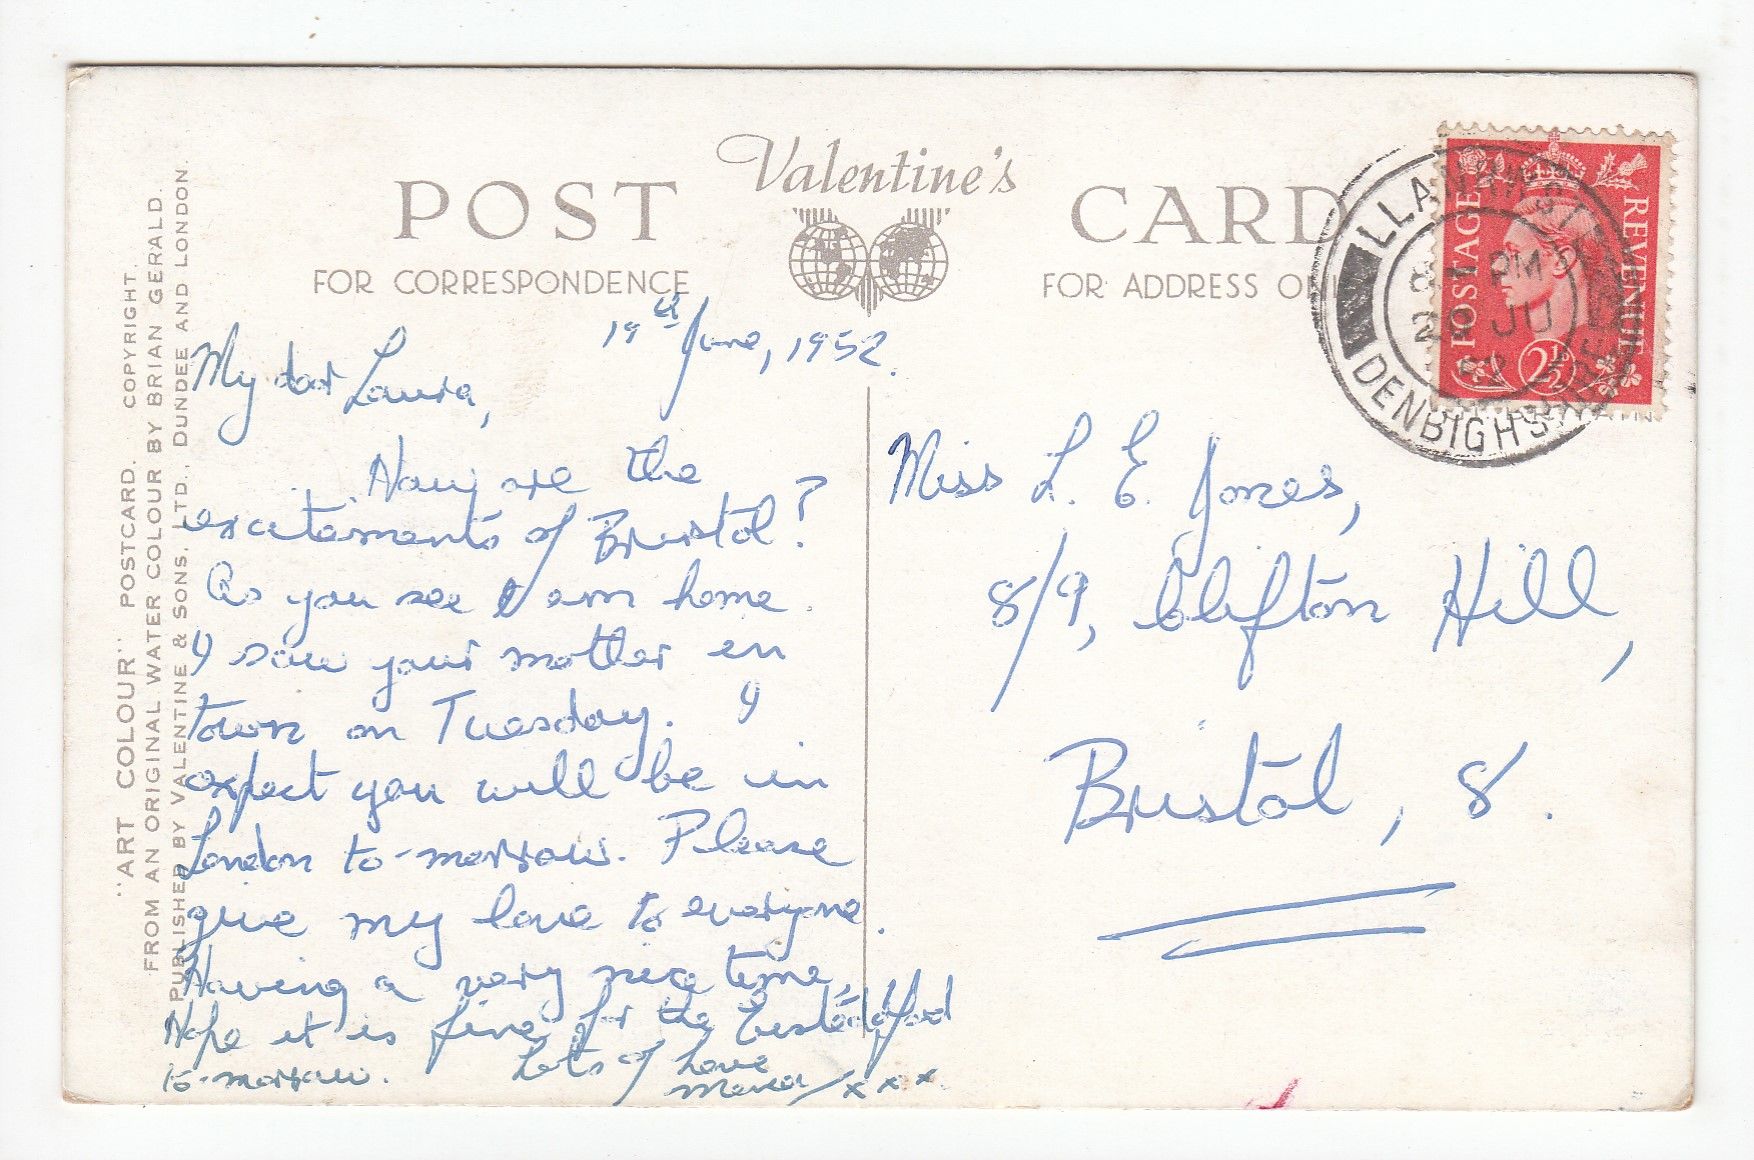 Valentine's
POST CARD
FOR CORRESPONDENCE
FOR ADDRESS O
"ART COLOUR" POSTCARD. COPYRIGHT.
FROM AN ORIGINAL WATER COLOUR BY BRIAN GERALD.
PUBLISHED BY VALENTINE & SONS, LTD., DUNDEE AND LONDON.
19th June, 1952.
My dear Laura,
How are the
excitements of Bristol?
As you see I am home.
I saw your mother in
town on Tuesday. I
expect you will be in
London to-morrow. Please
give my love to everyone.
Having a very nice time,
Hope it is fine for the Eisteddfod
to-morrow. Lots of Love
x x x
Miss L. E. Jones,
8/9, Clifton Hill,
Bristol, 8.
POSTAGE
REVENUE
2½
LLANRWST
PM
JU
52
DENBIGHSHIRE